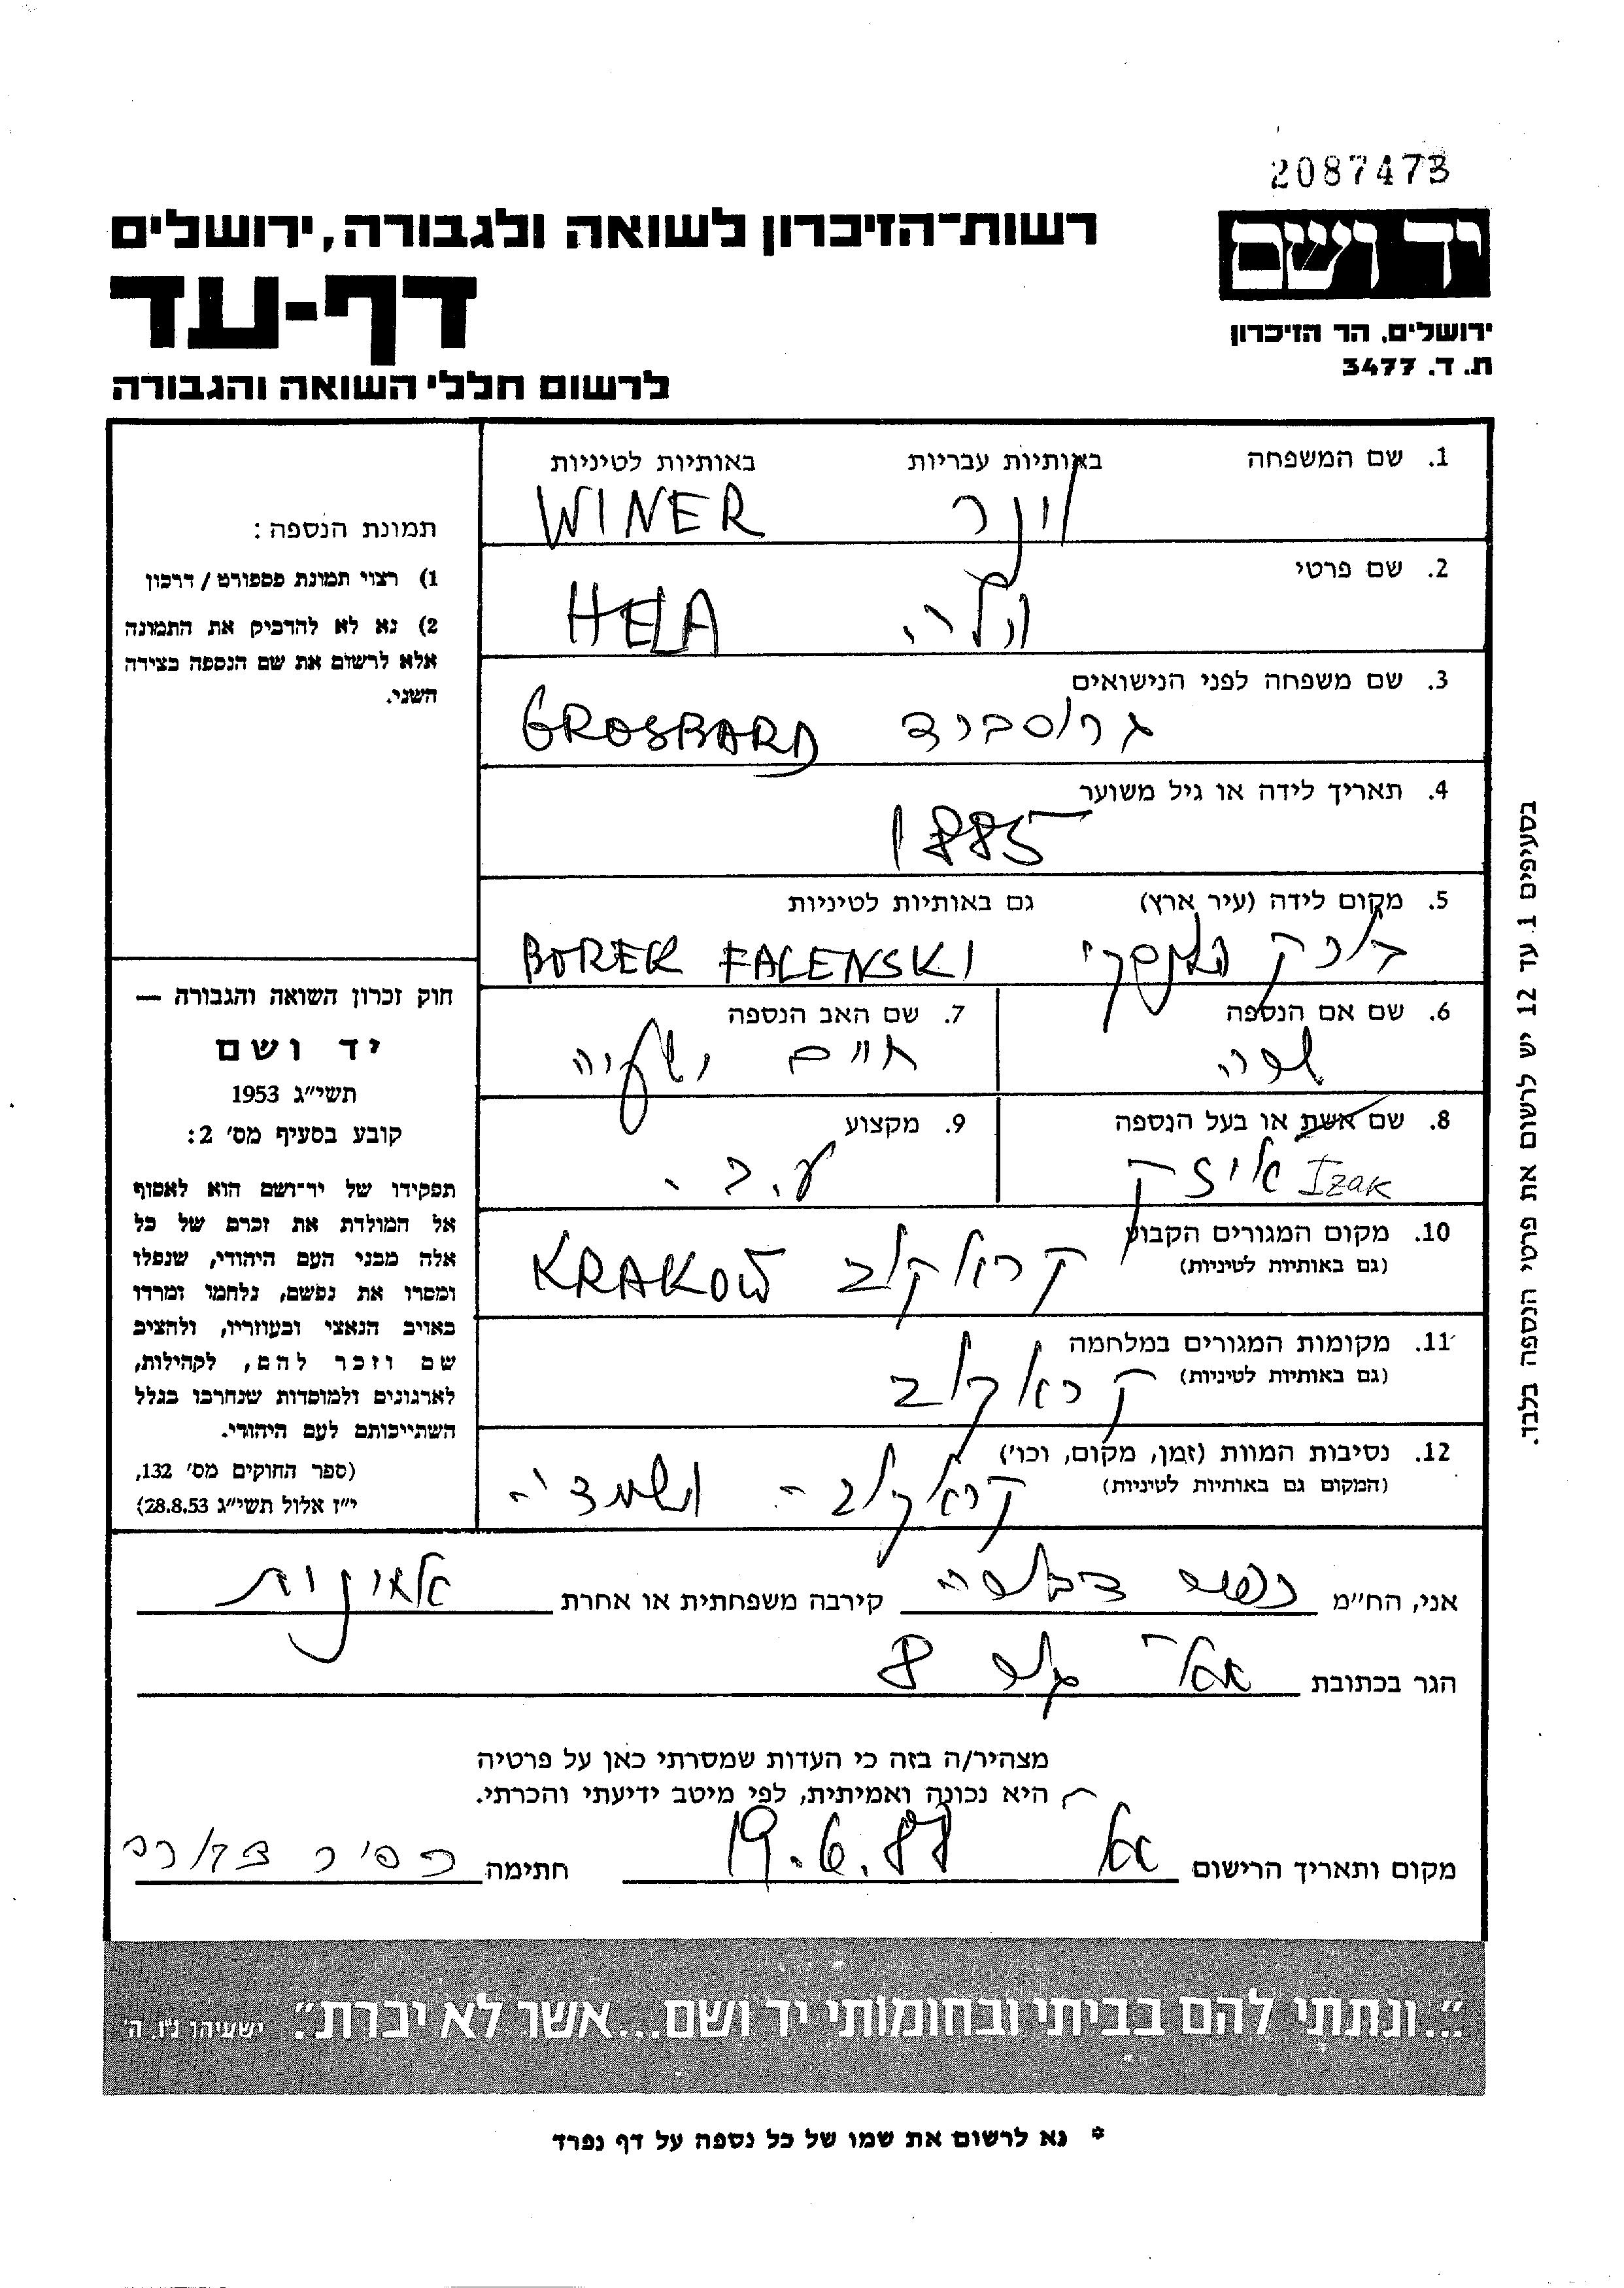 2087473
יד ושם
רשות־הזיכרון לשואה ולגבורה, ירושלים
דף-עד
ירושלים, הר הזיכרון
ת. ד. 3477
לרשום חללי השואה והגבורה
1. שם המשפחה באותיות עבריות באותיות לטיניות
וינר WINER
2. שם פרטי
הלה HELA
3. שם משפחה לפני הנישואים
גרוסברד GROSBARD
4. תאריך לידה או גיל משוער
1885
5. מקום לידה (עיר ארץ) גם באותיות לטיניות
בורק BOREK FALENSKI
6. שם אם הנספה
שרה
7. שם האב הנספה
חיים ישעיה
8. שם אשת או בעל הנספה
Izak איזק
9. מקצוע
ע.ב.
10. מקום המגורים הקבוע
(גם באותיות לטיניות)
קראקוב KRAKOW
11. מקומות המגורים במלחמה
(גם באותיות לטיניות)
קראקוב
12. נסיבות המוות (זמן, מקום, וכו')
(המקום גם באותיות לטיניות)
קראקוב -
תמונת הנספה:
1) רצוי תמונת פספורט / דרכון
2) נא לא להדביק את התמונה
אלא לרשום את שם הנספה בצידה
השני.
חוק זכרון השואה והגבורה —
יד ושם
תשי״ג 1953
קובע בסעיף מס׳ 2:
תפקידו של יד־ושם הוא לאסוף
אל המולדת את זכרם של כל
אלה מבני העם היהודי, שנפלו
ומסרו את נפשם, נלחמו ומרדו
באויב הנאצי ובעוזריו, ולהציב
שם וזכר להם, לקהילות,
לארגונים ולמוסדות שנחרבו בגלל
השתייכותם לעם היהודי.
(ספר החוקים מס׳ 132,
י״ז אלול תשי״ג 28.8.53)
בסעיפים 1 עד 12 יש לרשום את פרטי הנספה בלבד.
אני, הח״מ קירבה משפחתית או אחרת
הגר בכתובת 8
מצהיר/ה בזה כי העדות שמסרתי כאן על פרטיה
היא נכונה ואמיתית, לפי מיטב ידיעתי והכרתי.
מקום ותאריך הרישום 19.6.88 חתימה
״...ונתתי להם בביתי ובחומותי יד ושם...אשר לא יכרת״. ישעיהו נ״ו, ה׳
* נא לרשום את שמו של כל נספה על דף נפרד